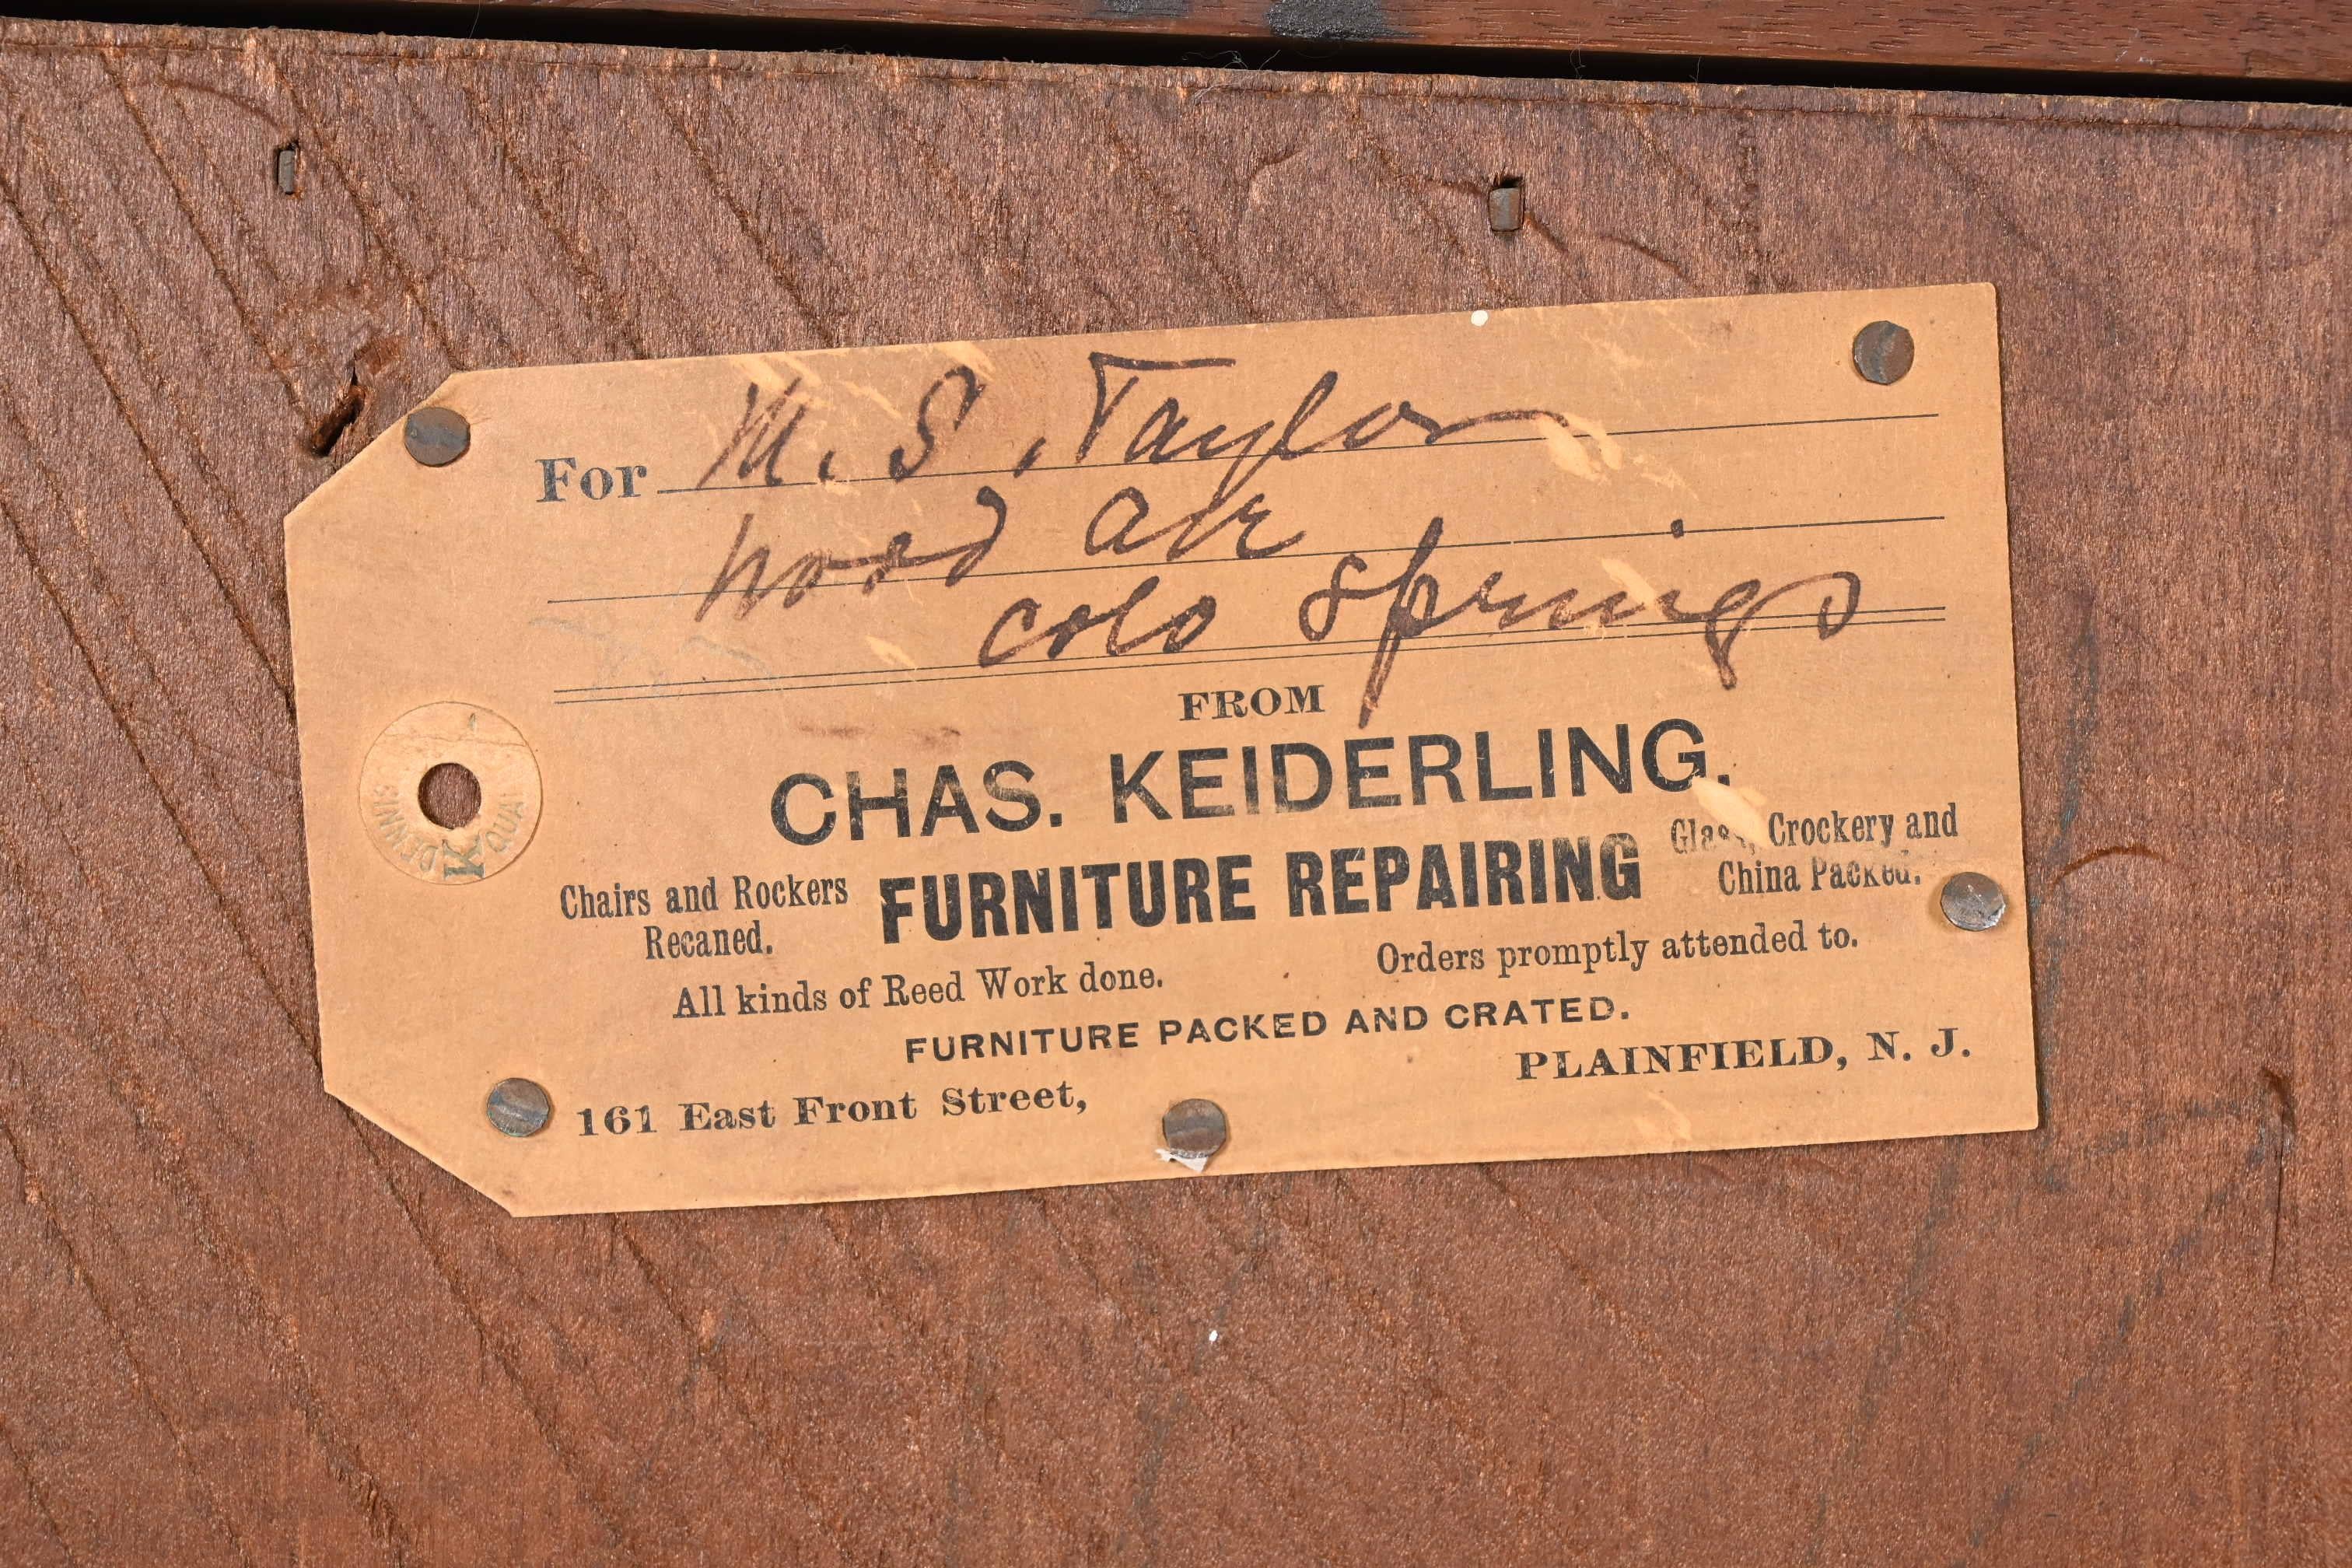 For M. S. Taylor
Wood Ave
Colo Springs
FROM
CHAS. KEIDERLING,
Chairs and Rockers
Recaned.
FURNITURE REPAIRING
Glass, Crockery and
China Packed.
All kinds of Reed Work done.
Orders promptly attended to.
FURNITURE PACKED AND CRATED.
161 East Front Street,
PLAINFIELD, N. J.
DENNIS
K
QUAL